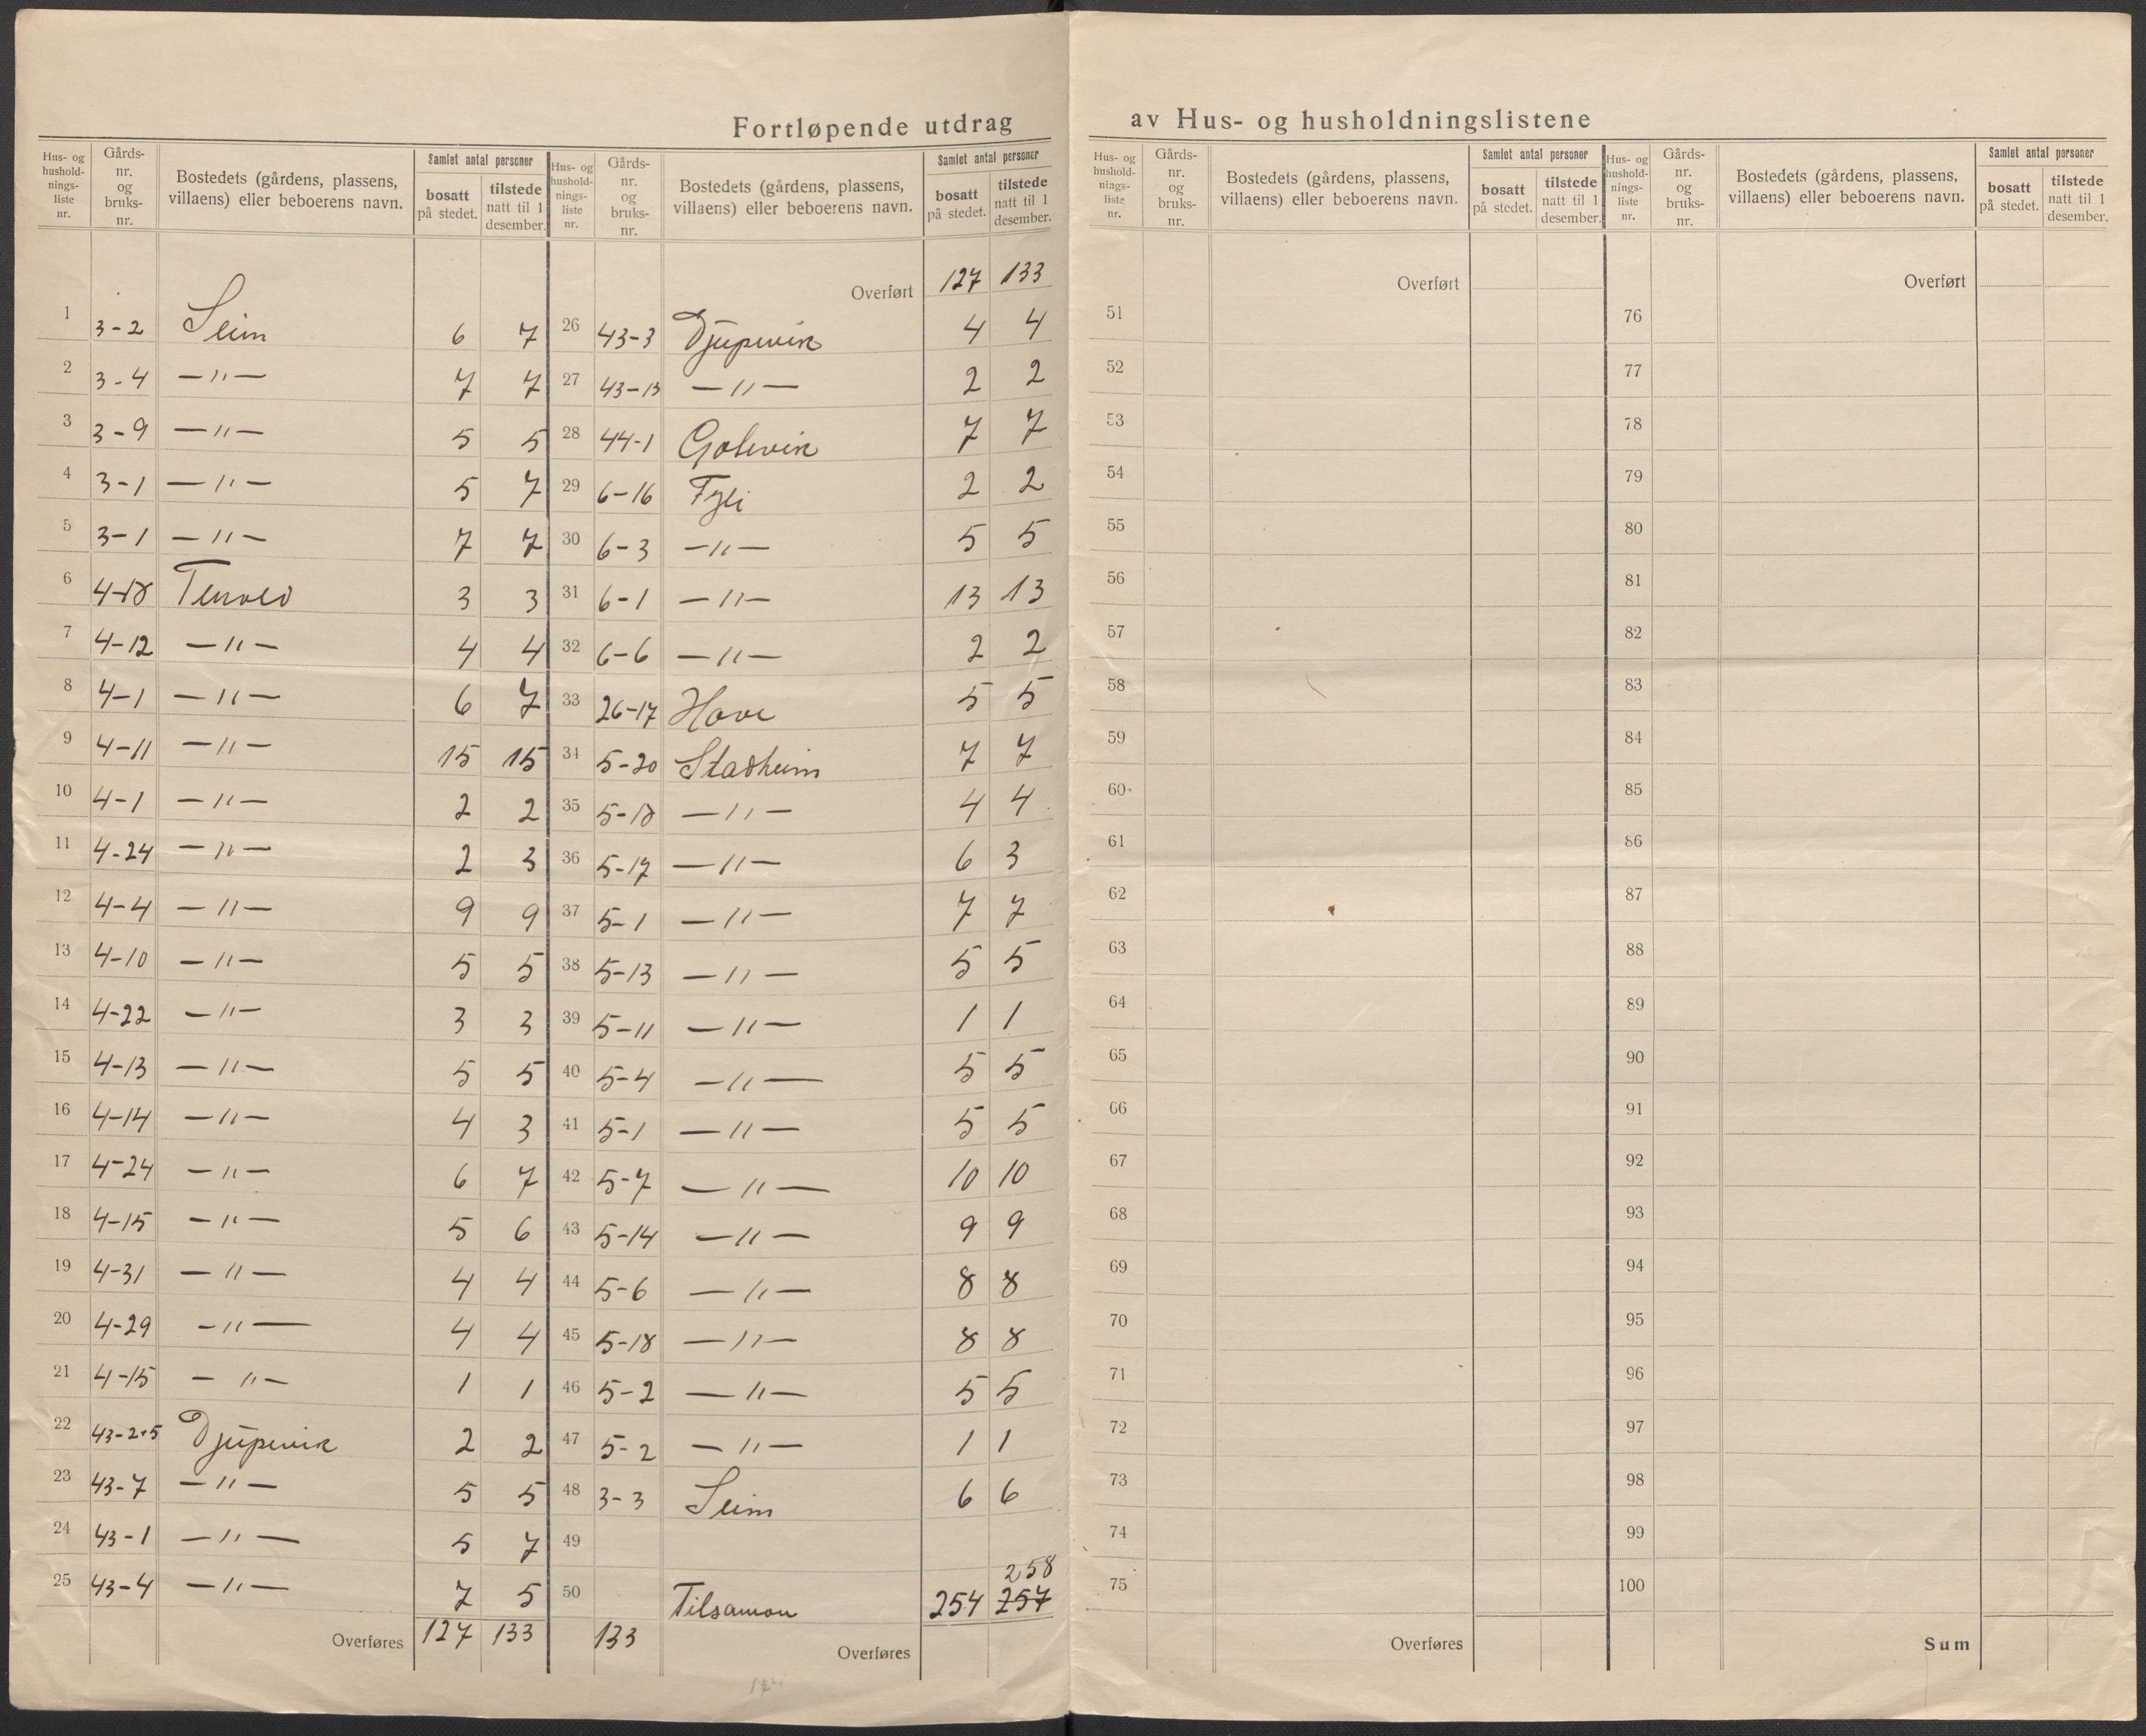 Fortløpende utdrag av Hus- og husholdningslistene
Hus- og hushold-nings-liste nr. Gårds-nr. og bruks-nr. Bostedets (gårdens, plassens, villaens) eller beboerens navn. Samlet antal personer bosatt på stedet. tilstede natt til 1 desember.
1 3-2 Seim 6 7
2 3-4 —"— 7 7
3 3-9 —"— 5 5
4 3-1 —"— 5 7
5 3-1 —"— 7 7
6 4-18 Tenold 3 3
7 4-12 —"— 4 4
8 4-1 —"— 6 7
9 4-11 —"— 15 15
10 4-1 —"— 2 2
11 4-24 —"— 2 3
12 4-4 —"— 9 9
13 4-10 —"— 5 5
14 4-22 —"— 3 3
15 4-13 —"— 5 5
16 4-14 —"— 4 3
17 4-24 —"— 6 7
18 4-15 —"— 5 6
19 4-31 —"— 4 4
20 4-29 —"— 4 4
21 4-15 —"— 1 1
22 43-2+5 Djupevik 2 2
23 43-7 —"— 5 5
24 43-1 —"— 5 7
25 43-4 —"— 7 5
Overføres 127 133
Hus- og hushold-nings-liste nr. Gårds-nr. og bruks-nr. Bostedets (gårdens, plassens, villaens) eller beboerens navn. Samlet antal personer bosatt på stedet. tilstede natt til 1 desember.
Overført 127 133
26 43-3 Djupevik 4 4
27 43-13 —"— 2 2
28 44-1 Golevik 7 7
29 6-16 Fyli 2 2
30 6-3 —"— 5 5
31 6-1 —"— 13 13
32 6-6 —"— 2 2
33 26-17 Hove 5 5
34 5-20 Stadheim 7 7
35 5-18 —"— 4 4
36 5-17 —"— 6 3
37 5-1 —"— 7 7
38 5-13 —"— 5 5
39 5-11 —"— 1 1
40 5-4 —"— 5 5
41 5-1 —"— 5 5
42 5-7 —"— 10 10
43 5-14 —"— 9 9
44 5-6 —"— 8 8
45 5-18 —"— 8 8
46 5-2 —"— 5 5
47 5-2 —"— 1 1
48 3-3 Seim 6 6
49
258
50 Tilsamon 254 257
133 Overføres
Hus- og hushold-nings-liste nr. Gårds-nr. og bruks-nr. Bostedets (gårdens, plassens, villaens) eller beboerens navn. Samlet antal personer bosatt på stedet. tilstede natt til 1 desember.
Overført
51
52
53
54
55
56
57
58
59
60
61
62
63
64
65
66
67
68
69
70
71
72
73
74
75
Overføres
Hus- og hushold-nings-liste nr. Gårds-nr. og bruks-nr. Bostedets (gårdens, plassens, villaens) eller beboerens navn. Samlet antal personer bosatt på stedet. tilstede natt til 1 desember.
Overført
76
77
78
79
80
81
82
83
84
85
86
87
88
89
90
91
92
93
94
95
96
97
98
99
100
Sum